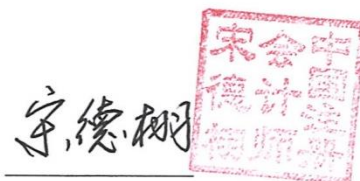 宋德栩
中国注册
会计师
宋德栩